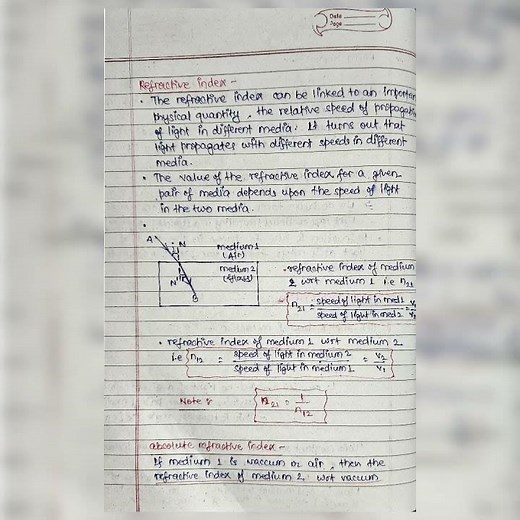 Date
Page
Refractive index -
• The refractive index can be linked to an important
physical quantity, the relative speed of propagation
of light in different media. It turns out that
light propagates with different speeds in different
media.
• The value of the refractive index for a given
pair of media depends upon the speed of light
in the two media.
A N medium 1
(Air)
medium 2
(Glass)
N'
B
• refractive index of medium
2 wrt medium 1 i.e n21
n21 = speed of light in med 1 / speed of light in med 2 = v1 / v2
• refractive index of medium 1 wrt medium 2
i.e n12 = speed of light in medium 2 / speed of light in medium 1 = v2 / v1
Note : n21 = 1 / n12
absolute refractive index -
If medium 1 is vaccum or air, then the
refractive index of medium 2 wrt vacuum